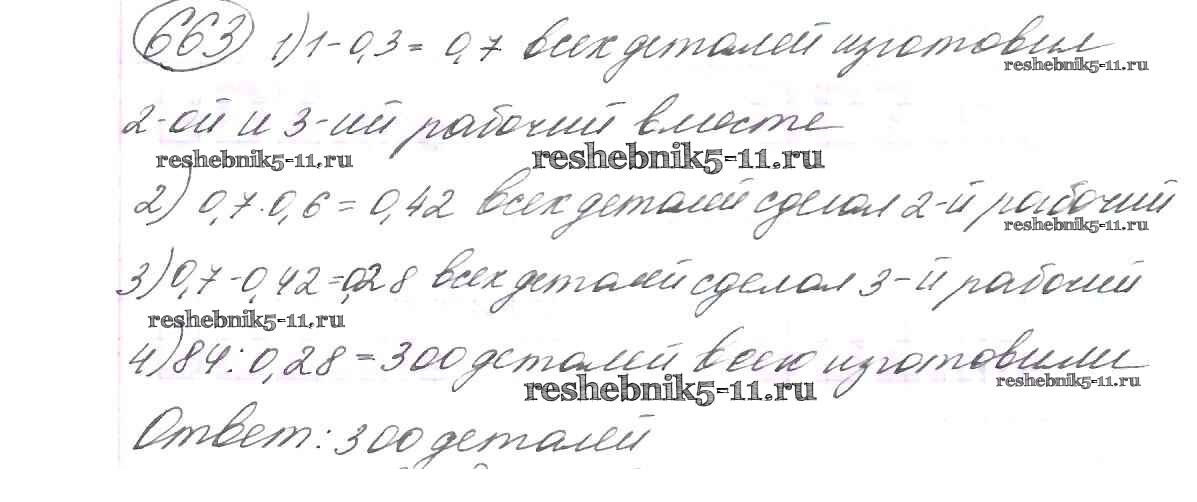 663 1) 1-0,3= 0,7 всех деталей изготовил
reshebnik5-11.ru
2-ой и 3-ий рабочий вместе
reshebnik5-11.ru reshebnik5-11.ru
2) 0,7·0,6=0,42 всех деталей сделал 2-й рабочий
reshebnik5-11.ru
3) 0,7-0,42=0,28 всех деталей сделал 3-й рабочий
reshebnik5-11.ru
4) 84:0,28=300 деталей всего изготовили
reshebnik5-11.ru reshebnik5-11.ru
Ответ: 300 деталей